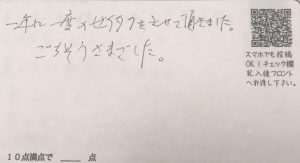 一年に一度のゼイタクをさせて頂きました。
ごちそうさまでした。
スマホでも投稿
OK！チェック欄
記入後フロント
へお渡し下さい。
10点満点で＿＿点